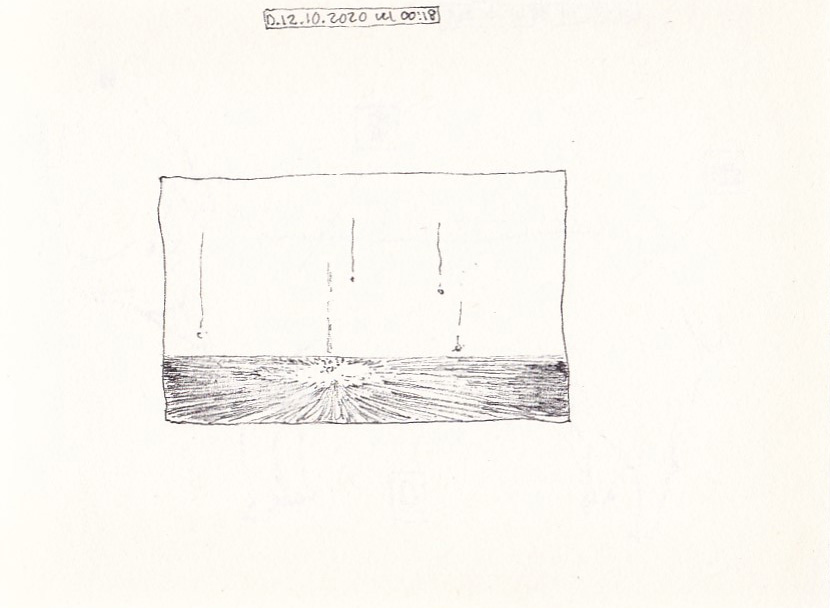 D.12.10.2020 kl 00:18